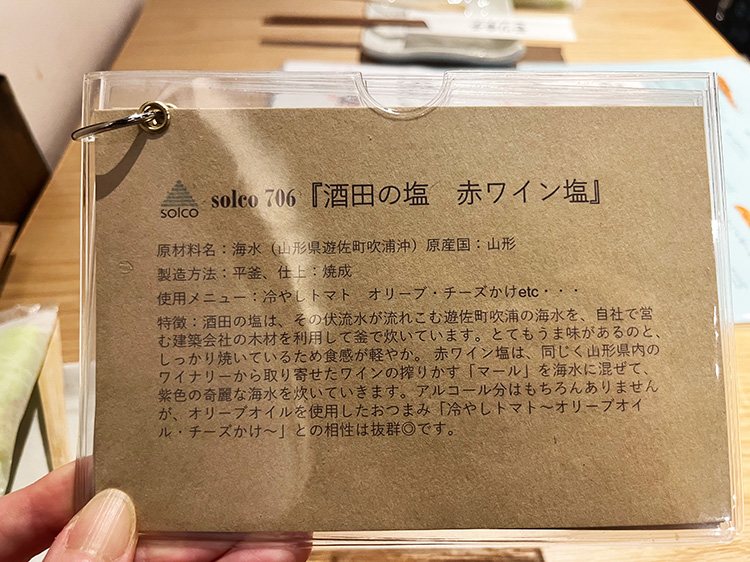 solco
solco 706『酒田の塩　赤ワイン塩』
原材料名：海水（山形県遊佐町吹浦沖）原産国：山形
製造方法：平釜、仕上：焼成
使用メニュー：冷やしトマト　オリーブ・チーズかけetc・・・
特徴：酒田の塩は、その伏流水が流れこむ遊佐町吹浦の海水を、自社で営
む建築会社の木材を利用して釜で炊いています。とてもうま味があるのと、
しっかり焼いているため食感が軽やか。 赤ワイン塩は、同じく山形県内の
ワイナリーから取り寄せたワインの搾りかす「マール」を海水に混ぜて、
紫色の奇麗な海水を炊いていきます。アルコール分はもちろんありません
が、オリーブオイルを使用したおつまみ「冷やしトマト～オリーブオイ
ル・チーズかけ～」との相性は抜群◎です。